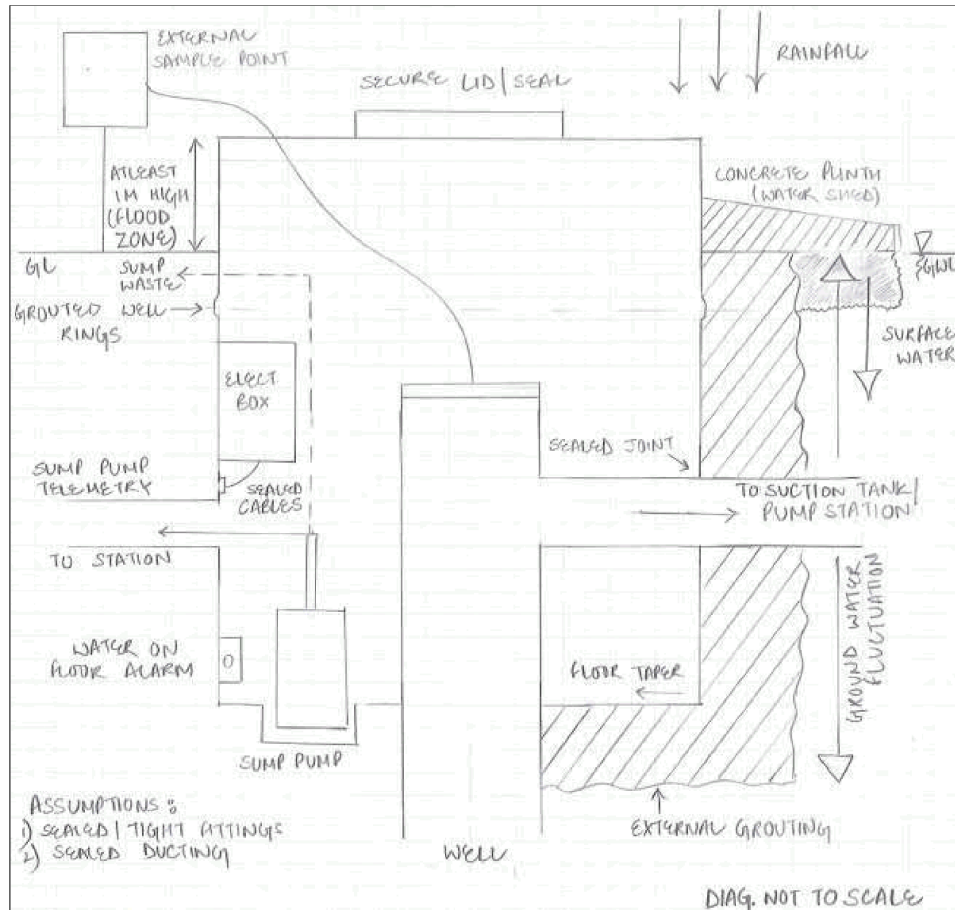 EXTERNAL
SAMPLE POINT
SECURE LID/SEAL
RAINFALL
ATLEAST
1M HIGH
(FLOOD
ZONE)
CONCRETE PLINTH
(WATER SHED)
GL
SUMP
WASTE
GWL
GROUTED WELL
RINGS
SURFACE
WATER
ELECT
BOX
SEALED JOINT
SUMP PUMP
TELEMETRY
SEALED
CABLES
TO SUCTION TANK/
PUMP STATION
TO STATION
GROUND WATER
FLUCTUATION
WATER ON
FLOOR ALARM
O
FLOOR TAPER
SUMP PUMP
ASSUMPTIONS:
1) SEALED/TIGHT FITTINGS
2) SEALED DUCTING
WELL
EXTERNAL GROUTING
DIAG. NOT TO SCALE